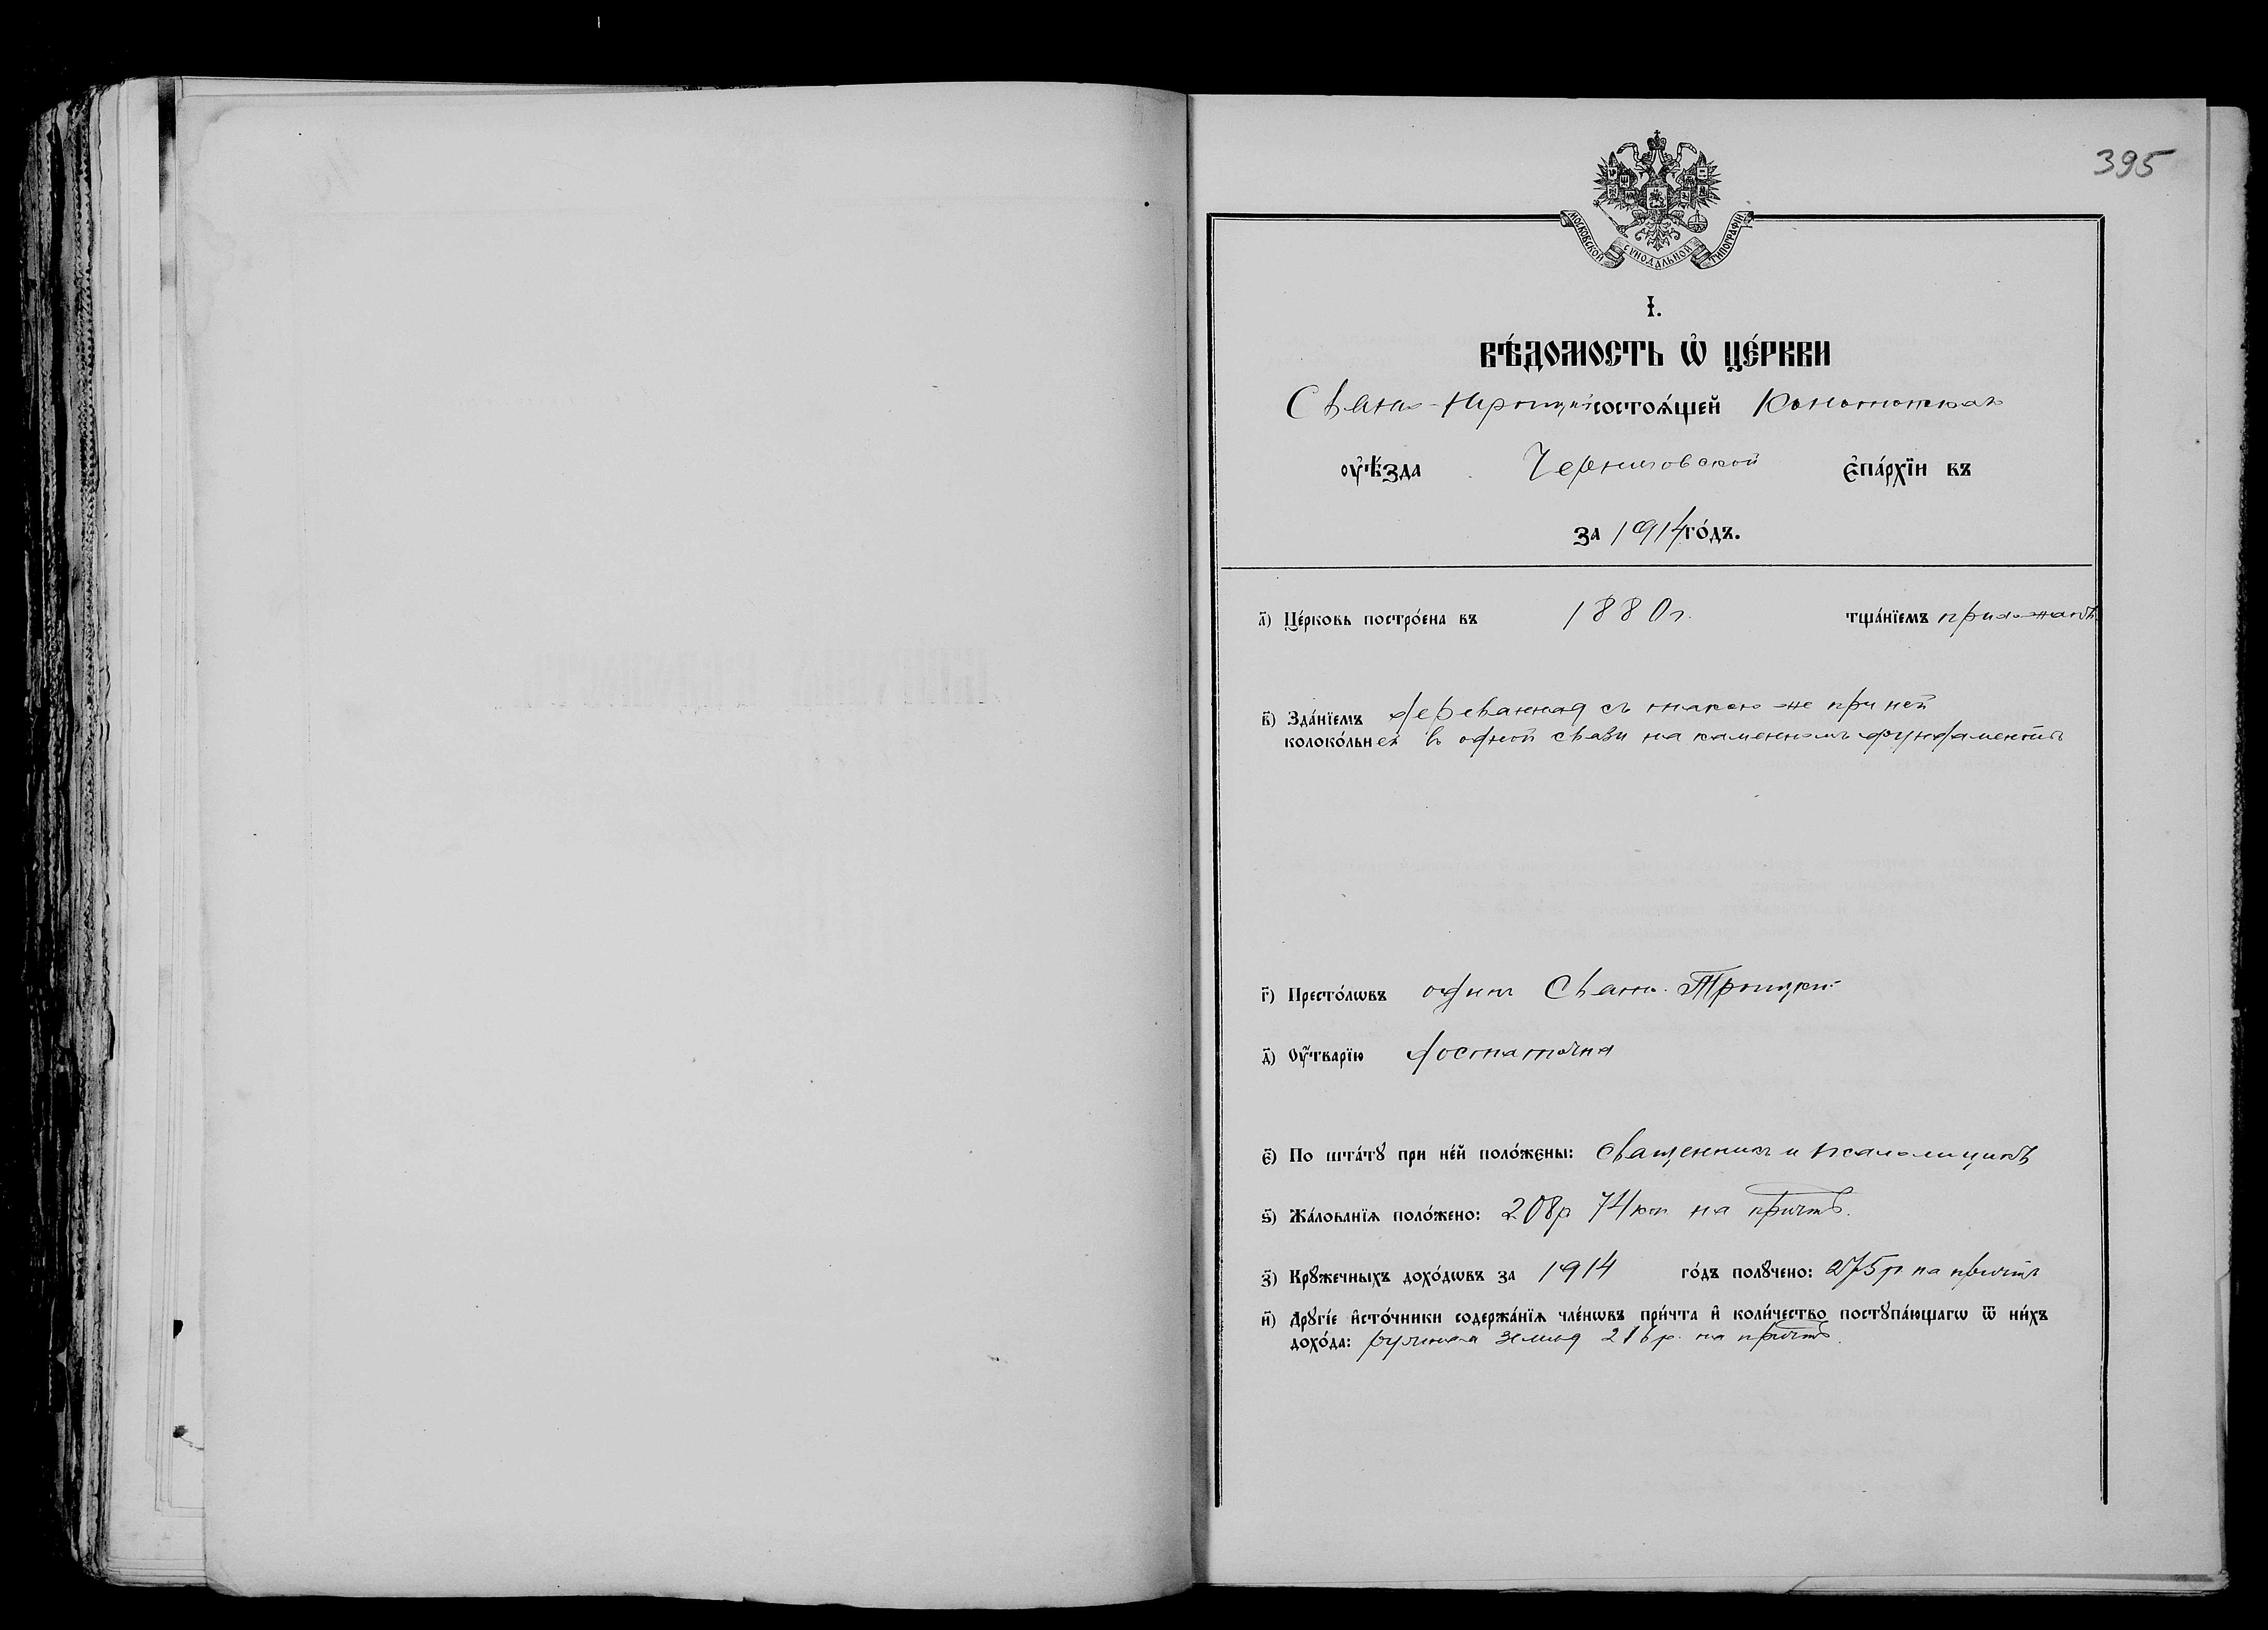 395
МОСКОВСКОЙ СѴНОДАЛЬНОЙ ТИПОГРАФІИ
І.
ВѢ́ДОМОСТЬ Ѡ҆ ЦЕ́РКВИ
Свято-Троицкой состоѧ́щей Конотопскаго
ᲂу҆ѣ́зда Черниговской є҆па́рхїи въ
за 1914 го́дъ.
а҃) Це́рковь постро́ена въ 1880 г. тща́нїемъ прихожанъ
в҃) Зда́нїемъ деревянная съ такою же при ней
колоко́льней въ одной связи на каменномъ фундаментѣ
г҃) Престо́лѡвъ одинъ Свято-Троицкій
д҃) Ѹ҆́тварїю достаточна
є҃) По шта́тꙋ при не́й поло́жены: священникъ и псаломщикъ
ѕ҃) Жа́лованїѧ поло́жено: 208 р 74 коп на причтъ.
з҃) Крꙋ́жечныхъ дохо́дѡвъ за 1914 го́дъ полꙋ́чено: 275 р. на причтъ
и҃) Дрꙋгі́е и҆сто́чники содержа́нїѧ чле́нѡвъ при́чта и҆ коли́чество постꙋпа́ющагѡ ѿ ни́хъ
дохо́да: ружная земля 216 р. на причтъ.